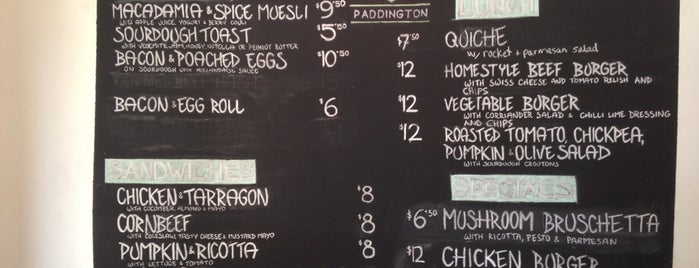 MACADAMIA & SPICE MUESLI $9.50
WITH APPLE JUICE, YOGURT & BERRY COULI
SOURDOUGH TOAST $5.50
WITH VEGEMITE, JAM, HONEY, NUTELLA OR PEANUT BUTTER
BACON & POACHED EGGS $10.50
ON SOURDOUGH WITH HOLLANDAISE SAUCE
BACON & EGG ROLL $6
SANDWICHES
CHICKEN & TARRAGON $8
WITH CUCUMBER, ALMOND & MAYO
CORNBEEF $8
WITH COLESLAW, TASTY CHEESE & MUSTARD MAYO
PUMPKIN & RICOTTA $8
WITH LETTUCE & TOMATO
PADDINGTON
LUNCH
$7.50 QUICHE
w/ rocket + parmesan salad
$12 HOMESTYLE BEEF BURGER
WITH SWISS CHEESE AND TOMATO RELISH AND
CHIPS
$12 VEGETABLE BURGER
WITH CORRIANDER SALAD & CHILLI LIME DRESSING
AND CHIPS
$12 ROASTED TOMATO, CHICKPEA,
PUMPKIN & OLIVE SALAD
WITH SOURDOUGH CROUTONS
SPECIALS
$6.50 MUSHROOM BRUSCHETTA
WITH RICOTTA, PESTO & PARMESAN
$12 CHICKEN BURGER